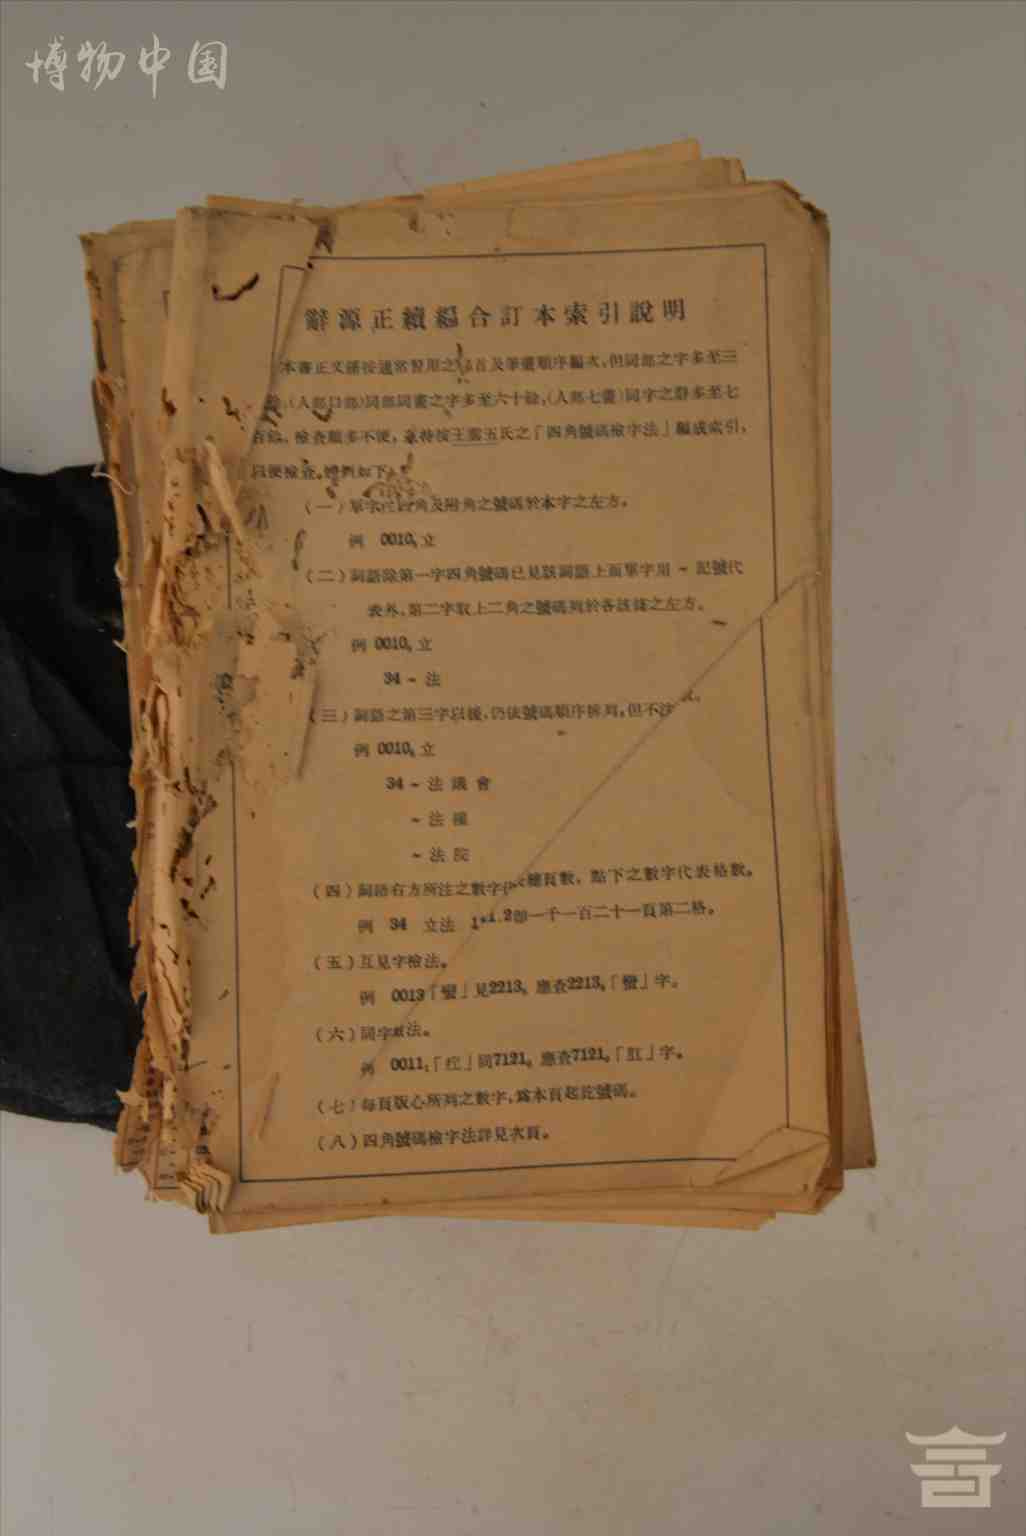 博物中国
辭源正續編合訂本索引說明
本書正文係按通常習用之 首及筆畫順序編次,但同部之字多至三
餘,(人部口部)同部同畫之字多至六十餘,(人部七畫)同字之辭多至七
百餘,檢查頗多不便,兹特按王雲五氏之「四角號碼檢字法」編成索引,
以便檢查。體例如下:
(一)單字 四角及附角之號碼於本字之左方。
例 0010₈立
(二)詞語除第一字四角號碼已見該詞語上面單字用~記號代
表外,第二字取上二角之號碼列於各該條之左方。
例 0010₈立
34~法
(三)詞語之第三字以後,仍依號碼順序排列,但不注
例 0010₈立
34~法議會
~法權
~法院
(四)詞語右方所注之數字代表總頁數,點下之數字代表格數。
例 34 立法 即一千一百二十一頁第二格。
(五)互見字檢法。
例 0013「蠻」見2213₆應查2213₆「蠻」字。
(六)同字 法。
例 0011₁「疘」同7121₁應查7121₁「肛」字。
(七)每頁版心所列之數字,爲本頁起訖號碼。
(八)四角號碼檢字法詳見次頁。